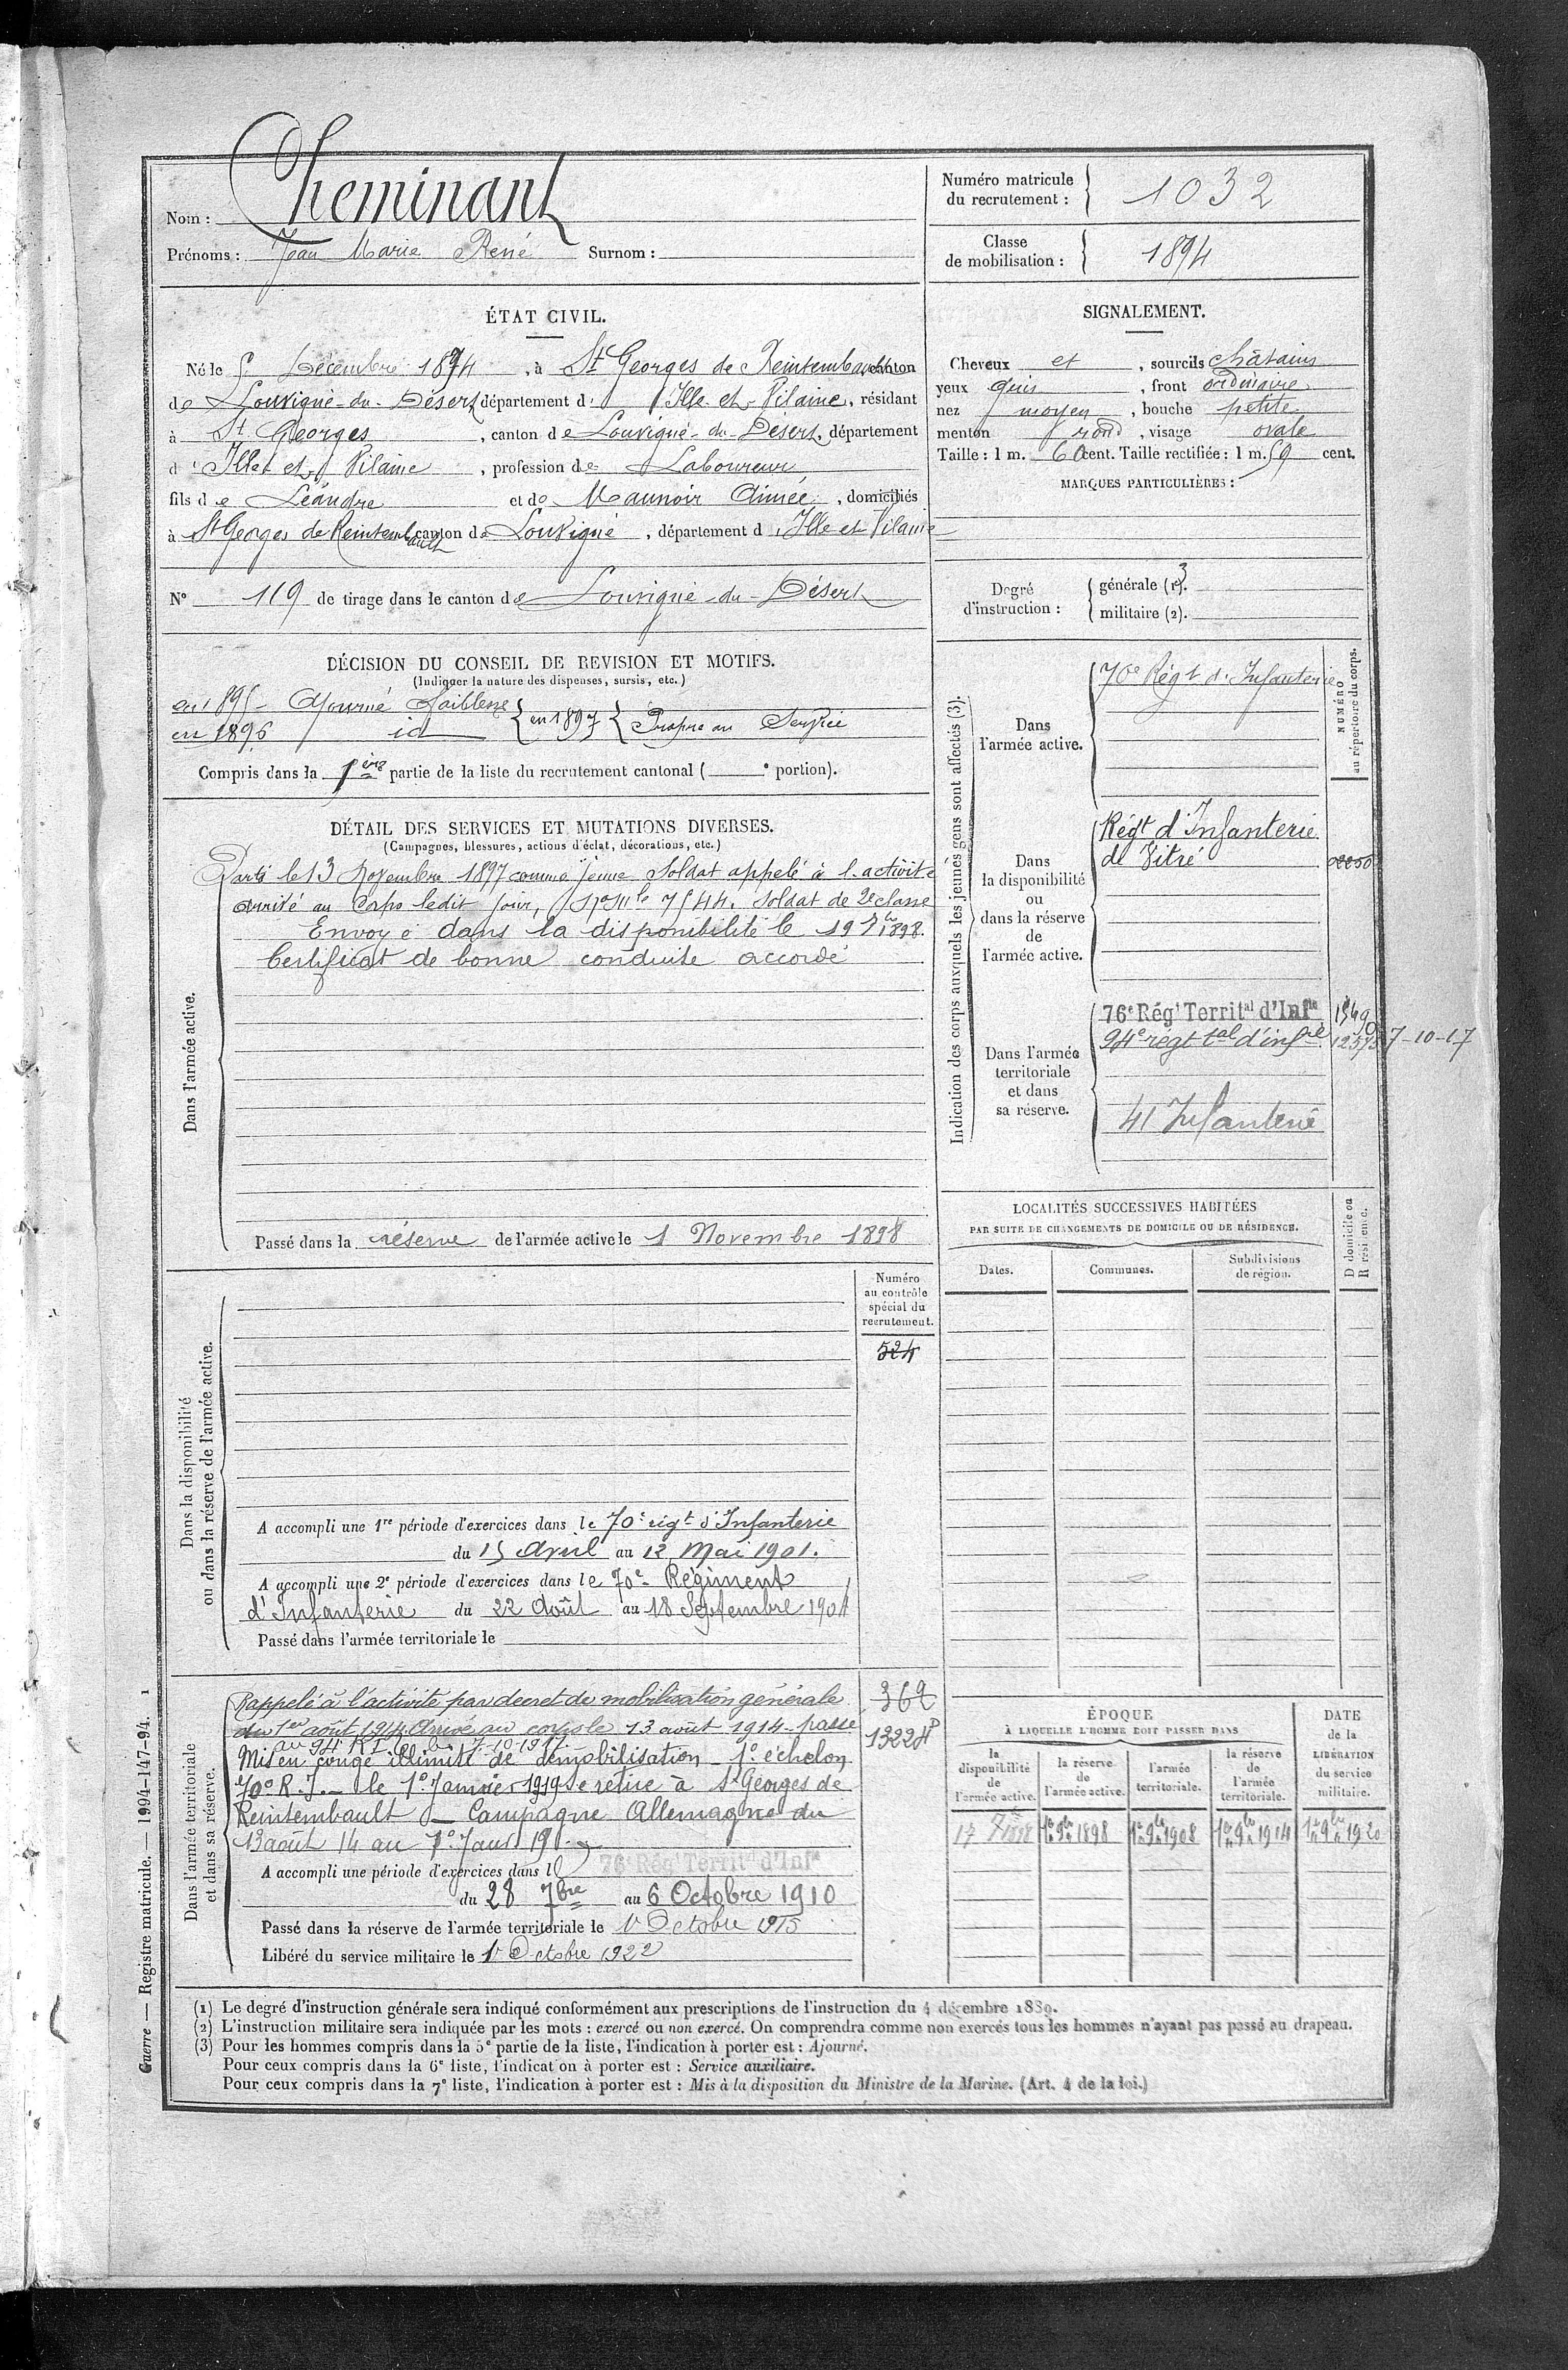 Nom : Cheminant
Prénoms : Jean Marie René Surnom :
Numéro matricule du recrutement : 1032
Classe de mobilisation : 1894
ÉTAT CIVIL.
Né le 5 Décembre 1874, à St Georges de Reintembault canton
de Louvigné-du-Désert département d' Ille-et-Vilaine, résidant
à St Georges, canton de Louvigné-du-Désert, département
d' Ille et Vilaine, profession de Laboureur
fils de Léandre et de Maunoir Aimée, domiciliés
à St Georges de Reintembault canton de Louvigné, département d' Ille et Vilaine
N° 119 de tirage dans le canton de Louvigné-du-Désert
SIGNALEMENT.
Cheveux et, sourcils châtains
yeux gris, front ordinaire
nez moyen, bouche petite
menton rond, visage ovale
Taille : 1 m. 60 cent. Taille rectifiée : 1 m. 59 cent.
MARQUES PARTICULIÈRES :
Degré d'instruction :
générale (1). 3
militaire (2).
DÉCISION DU CONSEIL DE REVISION ET MOTIFS.
(Indiquer la nature des dispenses, sursis, etc.)
en 1895 Ajourné faiblesse
en 1896 id { en 1897 { Propre au Service
Compris dans la 1ère partie de la liste du recrutement cantonal ( e portion).
DÉTAIL DES SERVICES ET MUTATIONS DIVERSES.
(Campagnes, blessures, actions d'éclat, décorations, etc.)
Dans l'armée active.
Parti le 13 Novembre 1897 comme jeune Soldat appelé à l'activité
arrivé au Corps ledit jour, No Mle 7544. Soldat de 2e classe
Envoyé dans la disponibilité le 19 7bre 1898.
Certificat de bonne conduite accordé
Passé dans la réserve de l'armée active le 1 Novembre 1898
Indication des corps auxquels les jeunes gens sont affectés (3).
NUMÉRO au répertoire du corps.
Dans l'armée active.
70e Régt d'Infanterie
Dans la disponibilité ou dans la réserve de l'armée active.
Régt d'Infanterie
de Vitré
Dans l'armée territoriale et dans sa réserve.
76e Régt Territal d'Infie
94e régt tal d'infie 7-10-17
41 Infanterie
LOCALITÉS SUCCESSIVES HABITÉES
PAR SUITE DE CHANGEMENTS DE DOMICILE OU DE RÉSIDENCE.
Dates. Communes. Subdivisions de région. D domicile ou R résidence.
Dans la disponibilité ou dans la réserve de l'armée active.
Numéro au contrôle spécial du recrutement.
524
A accompli une 1re période d'exercices dans le 70e régt d'Infanterie
du 15 Avril au 12 Mai 1901.
A accompli une 2e période d'exercices dans le 70e Régiment
d'Infanterie du 22 Août au 18 Septembre 1904
Passé dans l'armée territoriale le
Dans l'armée territoriale et dans sa réserve.
362
Rappelé à l'activité par décret de mobilisation générale
du 1er août 1914. Arrivé au corps le 13 août 1914 - passé
au 94e RI 7-10-1917
Mis en congé illimité de démobilisation 1° échelon
70e R.I. le 1° Janvier 1919 se retire à St Georges de
Reintembault - Campagne Allemagne du
13 août 14 au 1° Janv 19
A accompli une période d'exercices dans le 76e Régt Territal d'Infie
du 28 7bre au 6 Octobre 1910
Passé dans la réserve de l'armée territoriale le 1r Octobre 1915
Libéré du service militaire le 1r Octobre 1922
ÉPOQUE
À LAQUELLE L'HOMME DOIT PASSER DANS
la disponibilité de l'armée active. la réserve de l'armée active. l'armée territoriale. la réserve de l'armée territoriale.
DATE de la LIBÉRATION du service militaire.
17 7bre 1898 1er 9bre 1898 1er 9bre 1908 1er 9bre 1914 1er 9bre 1920
(1) Le degré d'instruction générale sera indiqué conformément aux prescriptions de l'instruction du 4 décembre 1889.
(2) L'instruction militaire sera indiquée par les mots : exercé ou non exercé. On comprendra comme non exercés tous les hommes n'ayant pas passé au drapeau.
(3) Pour les hommes compris dans la 5e partie de la liste, l'indication à porter est : Ajourné.
Pour ceux compris dans la 6e liste, l'indication à porter est : Service auxiliaire.
Pour ceux compris dans la 7e liste, l'indication à porter est : Mis à la disposition du Ministre de la Marine. (Art. 4 de la loi.)
Guerre — Registre matricule. — 1994-147-94. 1